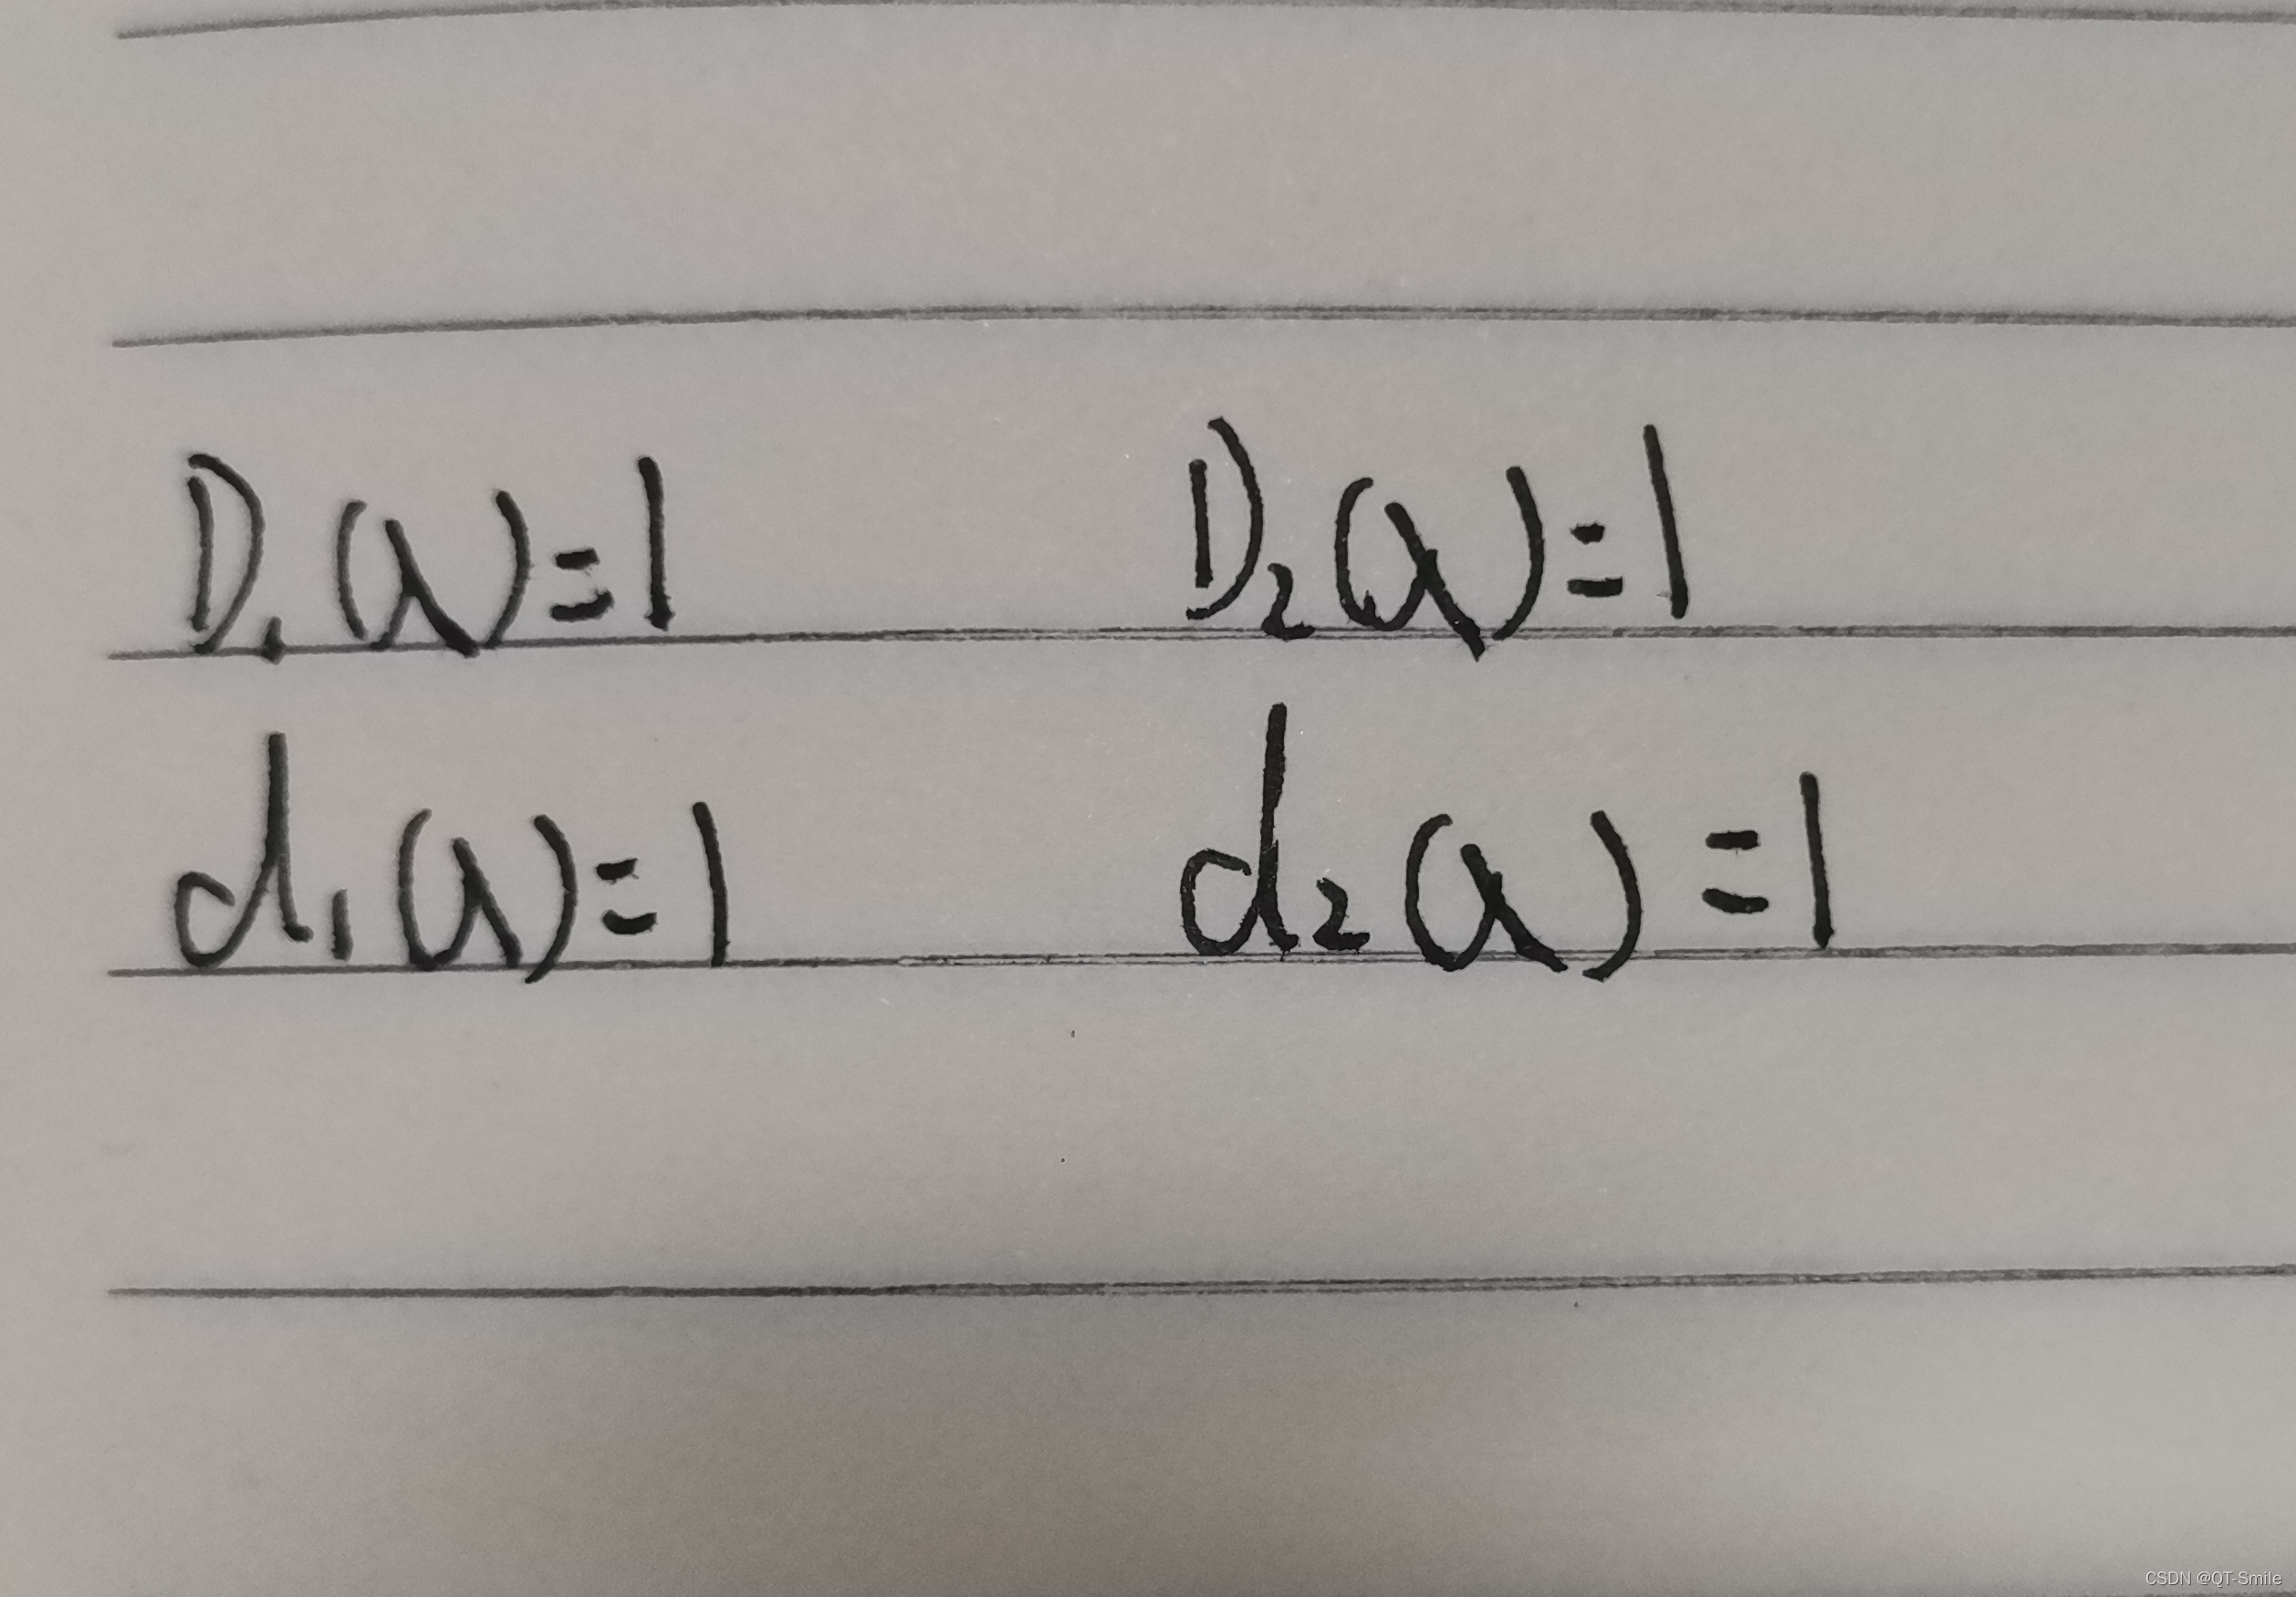 D₁(λ)=1 D₂(λ)=1
d₁(λ)=1 d₂(λ)=1
CSDN @QT-Smile